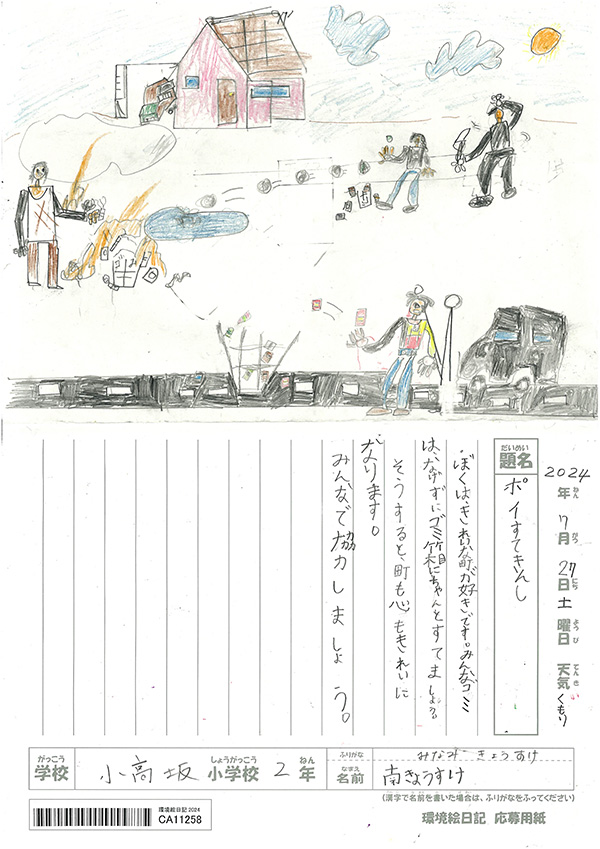 2024年7月27日土曜日 天気くもり
ねん がつ にち ようび てんき
題名 ポイすてきんし
だいめい
ぼくは、きれいな町が好きです。みんなゴミ
は、なげずにゴミ箱にちゃんとすてましょう。
そうすると、町も心もきれいに
なります。
みんなで協力しましょう。
がっこう しょうがっこう ねん
学校 小高坂 小学校 2年
ふりがな みなみ きょうすけ
なまえ
名前 南きょうすけ
(漢字で名前を書いた場合は、ふりがなをふってください)
環境絵日記 2024
CA11258
環境絵日記 応募用紙